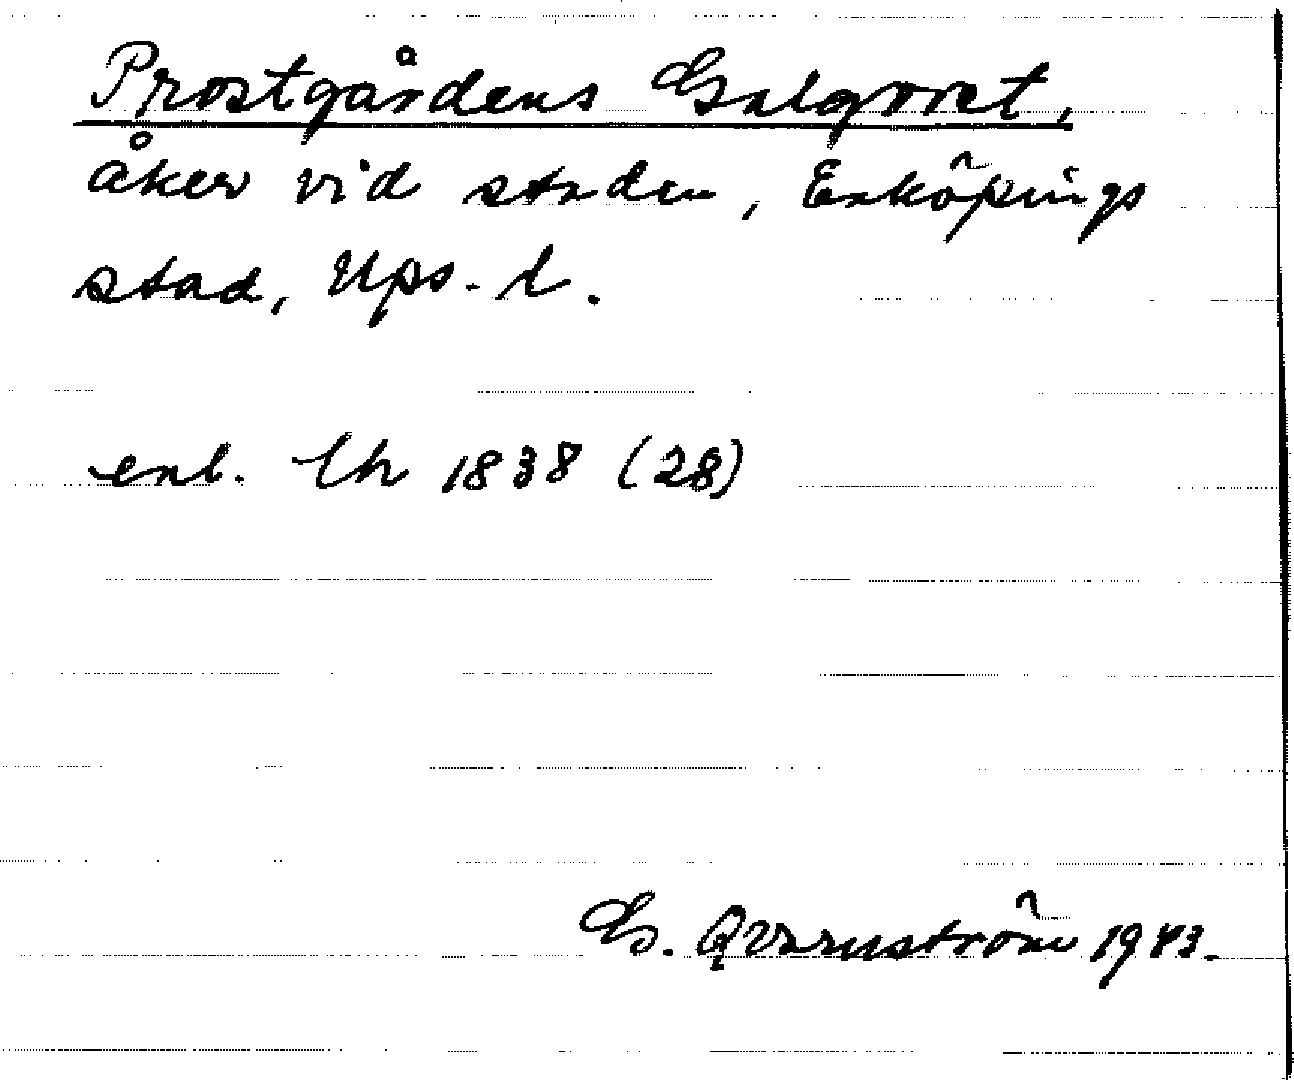 Prostgårdens Galgvret,
åker vid staden, Enköpings
stad, Upps. l.
enl. Ch 1838 (28)
G. Qvarnström 1943.